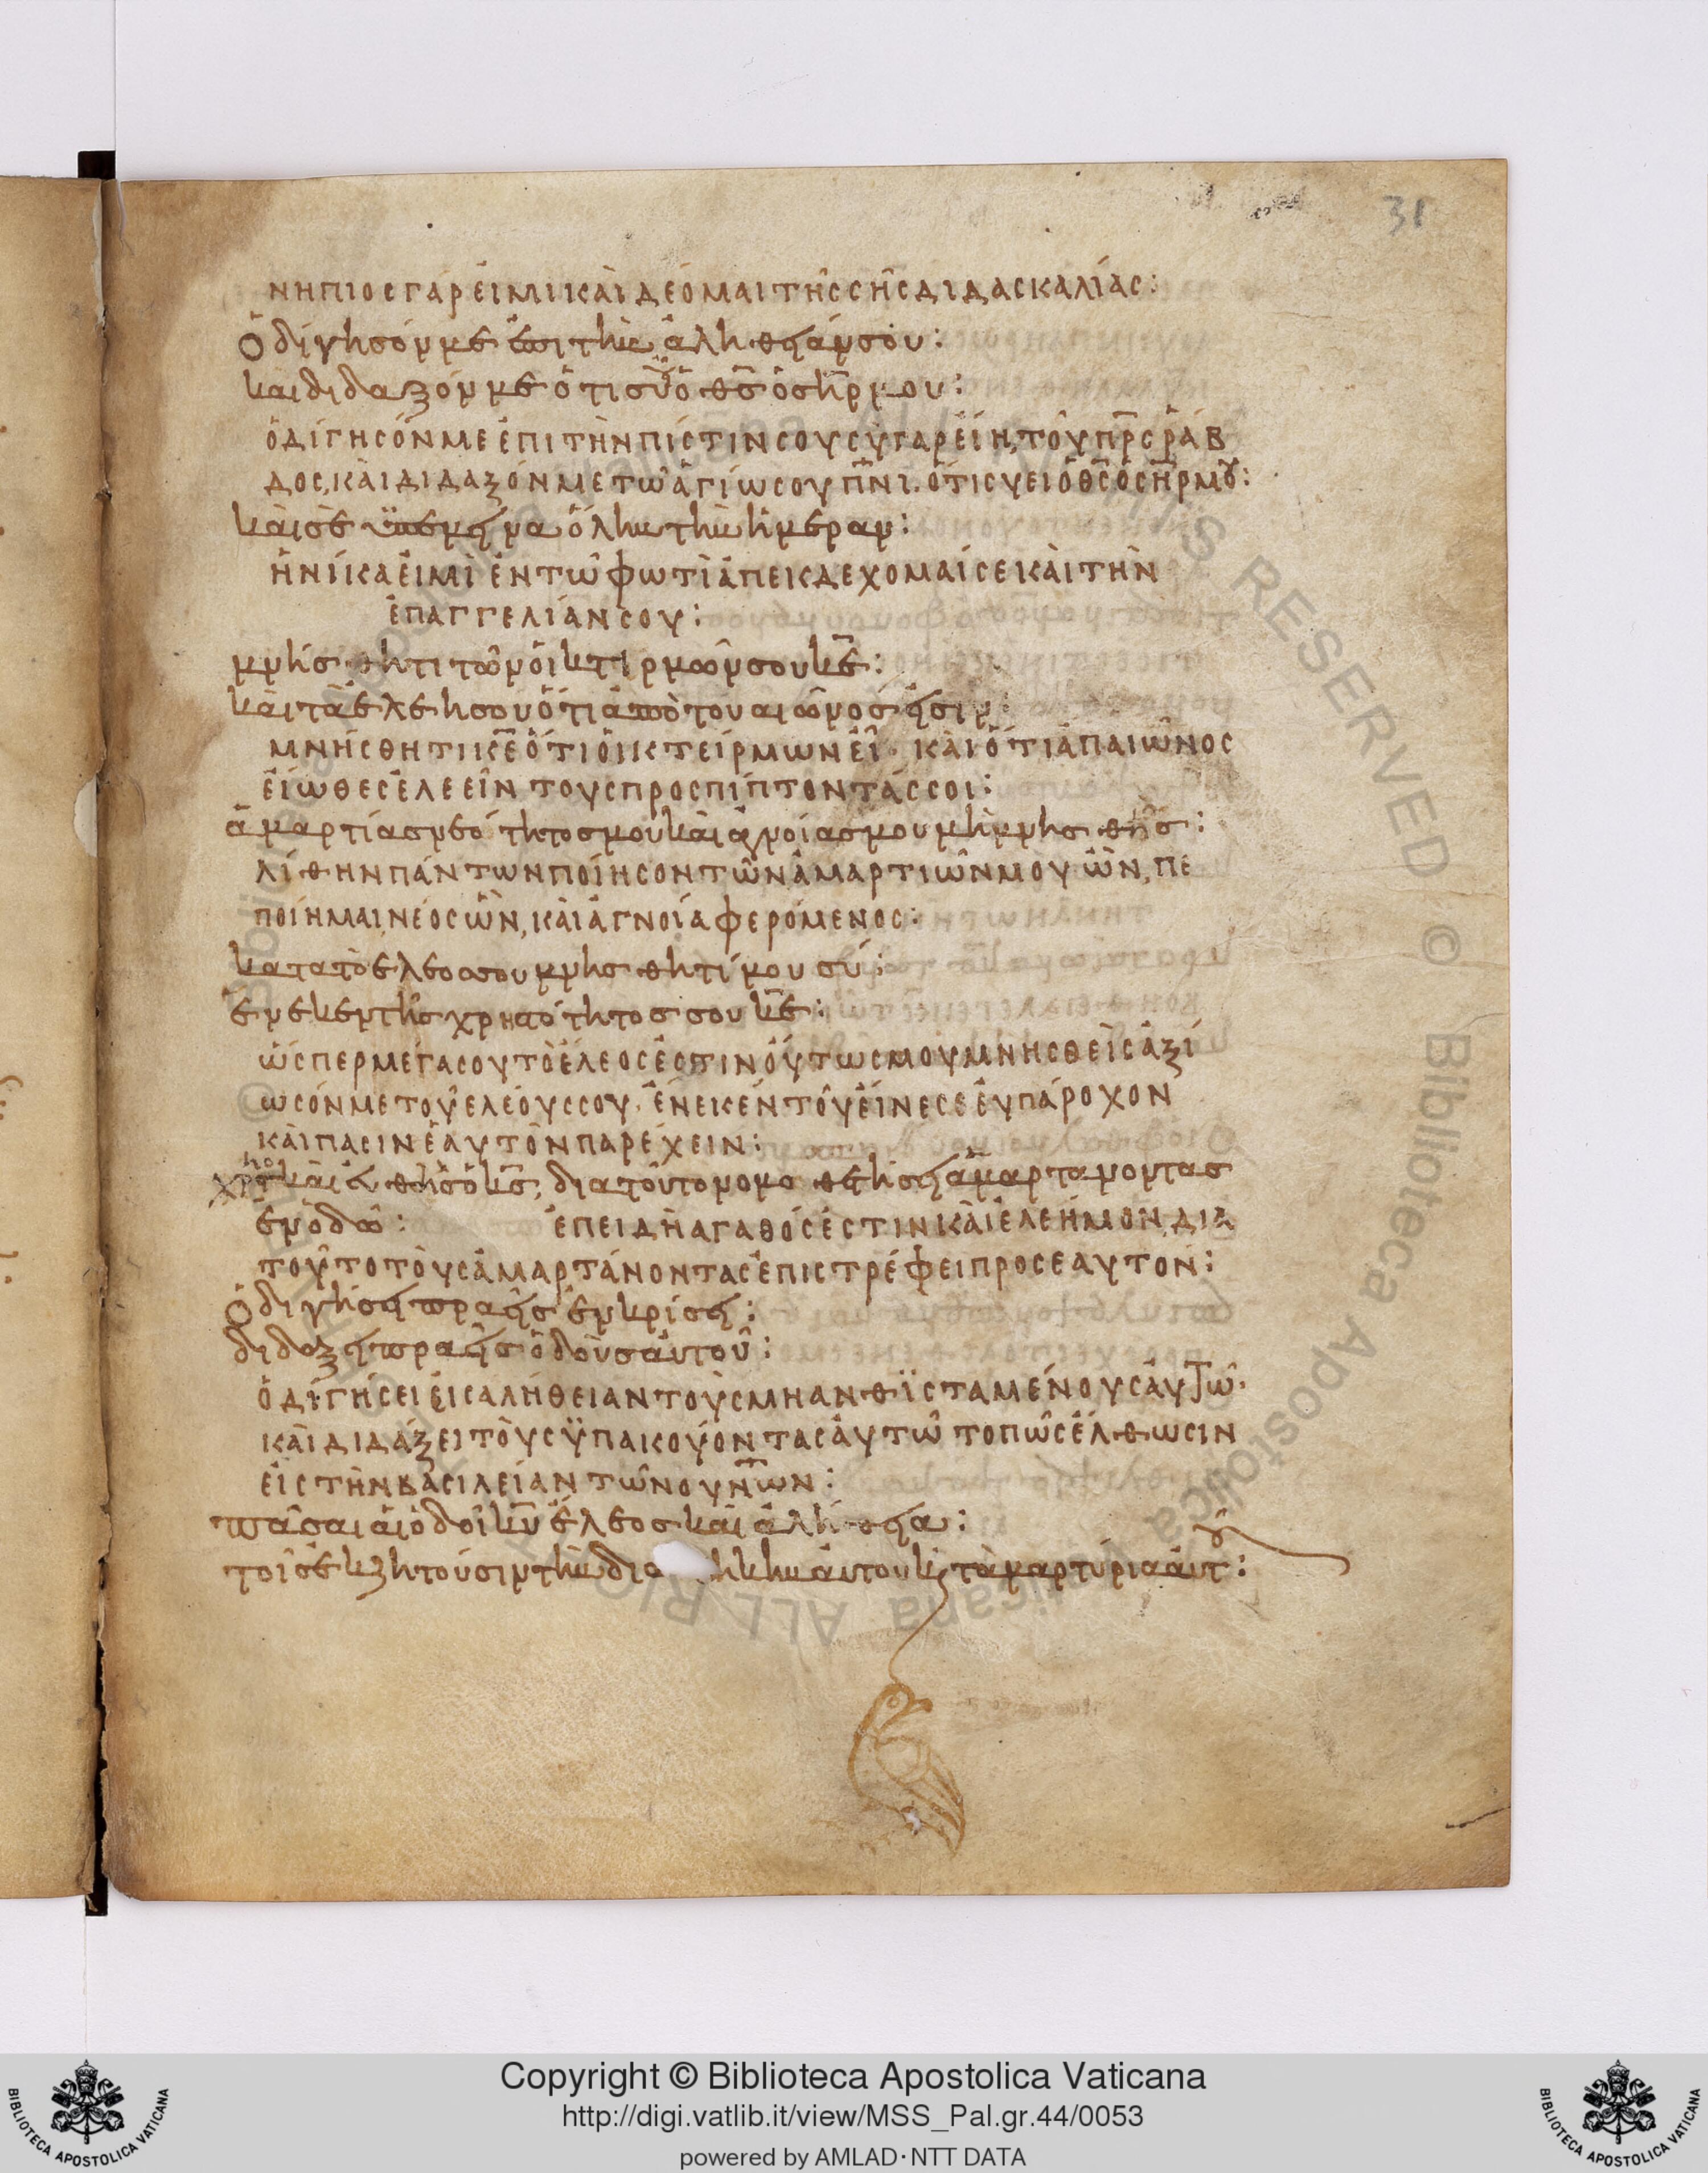 31
νηπιος γάρ ἐιμι καὶ δέομαι τῆς σῆς διδασκαλίας:
Ὁδίγησόν με ἐπι τὴν ἀλήθειάν σου:
καὶ διδαξόν με ὅτι σὺ εἶ ὁ θς ὁ σηρ μου:
ὁδίγησόν με ἐπι τὴν πίστιν σου σὺ γαρ εἶ ἡ τοῦ πρς ράβ
δος, καὶ διδαξόν με τῶ ἁγίω σου πνι. ὅτι συ ει ὁ θς ὁ σηρ μου:
καὶ σὲ ὑπέμεινα ὅλην τὴν ἡμέραν:
ἡνίκα ἐιμὶ ἐν τῶ φωτὶ ἀπεκδεχομαί σε καὶ τὴν
ἐπαγγελίαν σου:
μνήσθητι τῶν ὀικτιρμῶν σου κε:
καὶ τὰ ἐλέη σου ὅτι ἀπὸ του αιῶνός ἐισιν:
μνήσθητι κε ὅτι ὀικτείρμων εἶ· καὶ ὅτι ἀπ αιῶνος
ἐίωθες ἐλεεῖν τους προσπίπτοντάς σοι:
ἁμαρτίας νεότητος μου καὶ ἀγνοίας μου μὴ μνησθῆς:
λίθην πάντων ποίησον τῶν ἁμαρτιῶν μου ὧν, πε
ποίημαι νέος ὢν, καὶ ἀγνοία φερόμενος:
κατα τὸ ἔλεος σου μνησθητί μου σύ:
ἕνεκεν τῆς χρηστότητος σου κε:
ὥσπερ μέγα σου τὸ ἔλεος ἐστιν ὅυτως μου μνησθεὶς ἀξί
ωσόν με τοῦ ελέους σου. ἕνεκεν τοῦ ἐίνε σε ἔυπάροχον
καὶ πασιν ἑαυτὸν παρέχειν:
χρηστὸς καὶ ἐυθὴς ὁ κς, δια τοῦτο νομοθετήσει ἁμαρτανοντας
ἐν ὁδῶ: ἐπειδὴ αγαθός ἐστιν καὶ ἐλεήμον, δια
τοῦτο τοὺς ἁμαρτάνοντας ἐπιστρέφει προς εαυτον:
Ὁδιγήσει πραεῖς ἐν κρίσει:
διδαξει πραεῖς ὁδοὺς ἀυτοῦ:
ὁδιγήσει ἐις αλήθειαν τοὺς μη ανθισταμένους ἀυτῶ·
καὶ διδάξει τοὺς ὑπακούοντας ἀυτῶ το πῶς ἔλθωσιν
εἰς τὴν βασιλείαν τῶν ουνων:
πᾶσαι ἁι ὁδοὶ κυ ἔλεος καὶ ἀλήθεια:
τοῖς ἐκζητούσιν τὴν δια ηκην ἀυτου κ τὰ μαρτύρια ἀυτου:
Copyright © Biblioteca Apostolica Vaticana
http://digi.vatlib.it/view/MSS_Pal.gr.44/0053
powered by AMLAD·NTT DATA